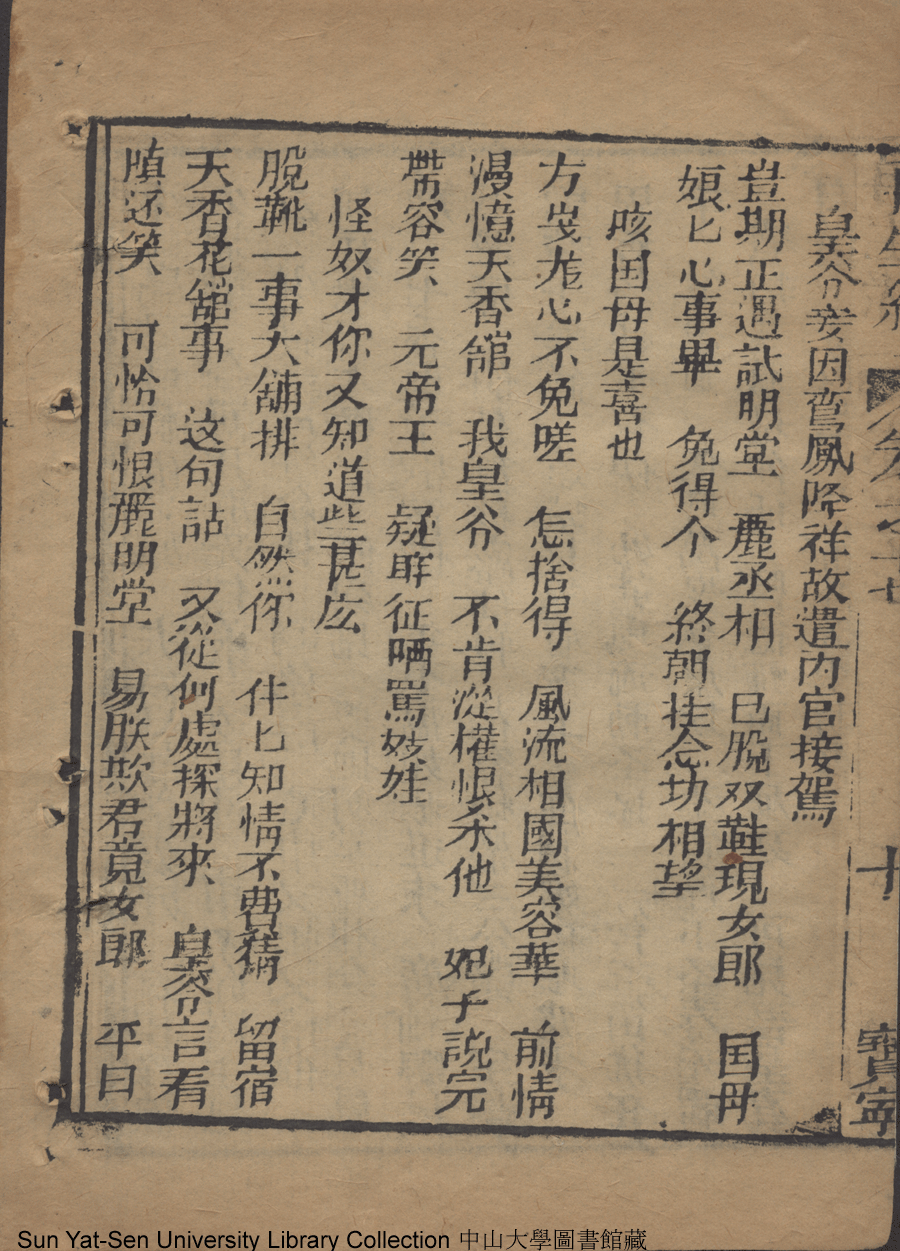 皇爷妾因鸾鳳降祥故遣内官接駕
豈期正遇試明堂　麗丞相　已脫双鞋現女郎　国母
娘匕心事畢　免得个　終朝挂念功相望
咳国母是喜也
方岌尨心不免嗟　怎捨得　風流相國美容華　前情
漫憶天香舘　我皇爷　不肯從權恨杀他　妃子說完
帶容笑　元帝王　疑眸征哂罵妓娃
怪奴才你又知道些甚庅
脫靴一事大舖排　自然你　件匕知情不費猜　留宿
天香花舘事　这句話　又從何處探將來　皇爷言着
嗔还笑　可怜可恨麗明堂　易朕欺君竟女郎　平日
十
寶寧
Sun Yat-Sen University Library Collection 中山大學圖書館藏